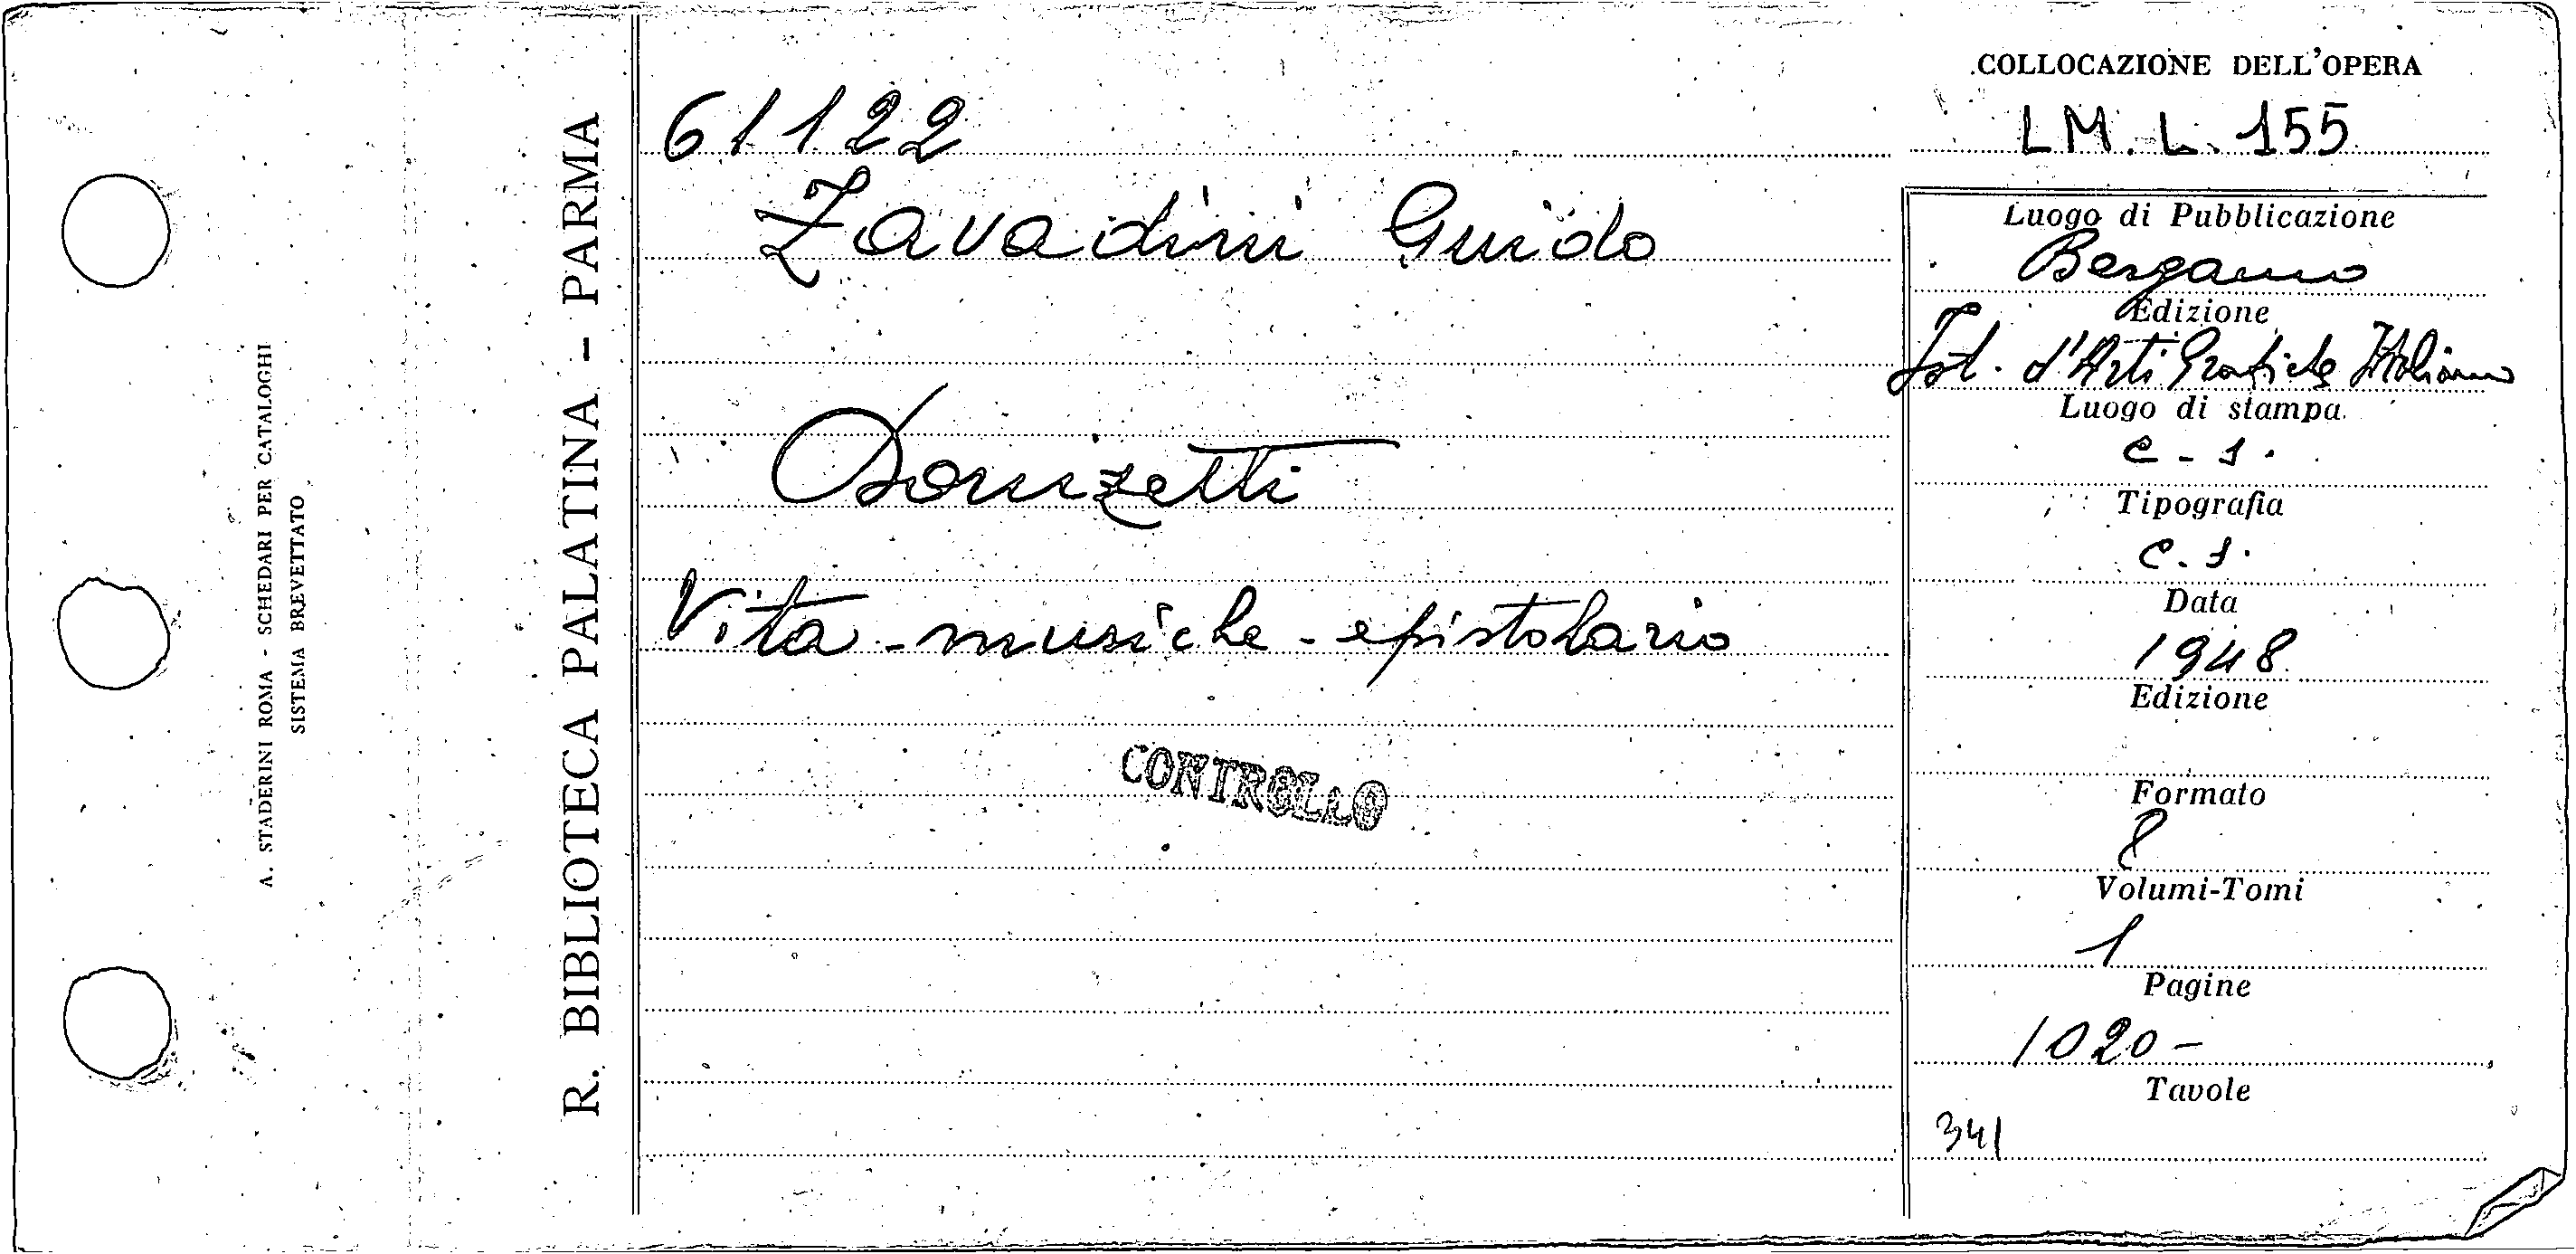 A. STADERINI ROMA - SCHEDARI PER CATALOGHI
SISTEMA BREVETTATO
R. BIBLIOTECA PALATINA - PARMA
61122
Zavadini Guido
Donizetti
Vita - musiche - epistolario
CONTROLLO
COLLOCAZIONE DELL'OPERA
LM. L. 155
Luogo di Pubblicazione
Bergamo
Edizione
Ist. d'Arti Grafiche Italiano
Luogo di stampa
c - s.
Tipografia
c. s.
Data
1948
Edizione
Formato
8
Volumi-Tomi
1
Pagine
1020 -
Tavole
341